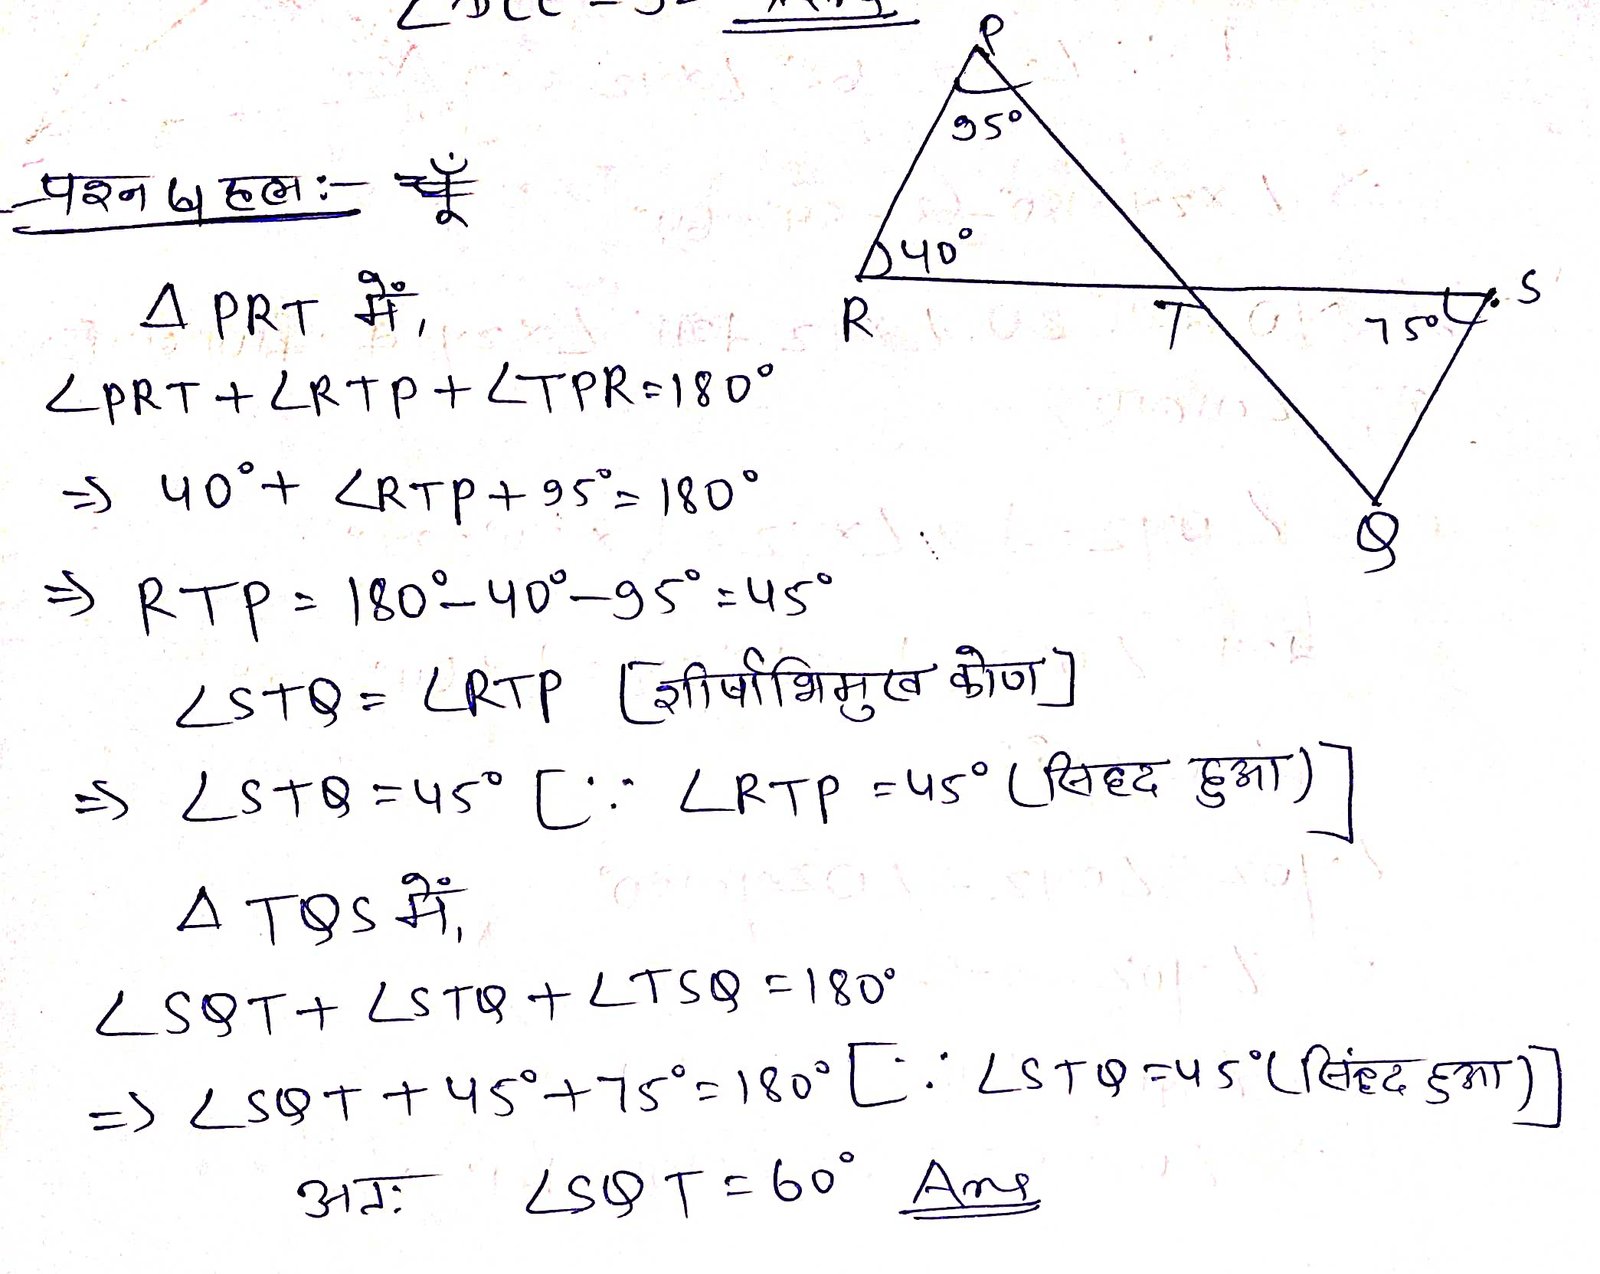 P
95°
प्रश्न 4 हल :-
40°
R
T
75°
S
Q
Δ PRT में,
∠PRT + ∠RTP + ∠TPR = 180°
⇒ 40° + ∠RTP + 95° = 180°
⇒ RTP = 180° - 40° - 95° = 45°
∠STQ = ∠RTP [शीर्षाभिमुख कोण]
⇒ ∠STQ = 45° [∵ ∠RTP = 45° (सिद्द हुआ)]
Δ TQS में,
∠SQT + ∠STQ + ∠TSQ = 180°
⇒ ∠SQT + 45° + 75° = 180° [∵ ∠STQ = 45° (सिंद्द हुआ)]
अतः ∠SQT = 60° Ans